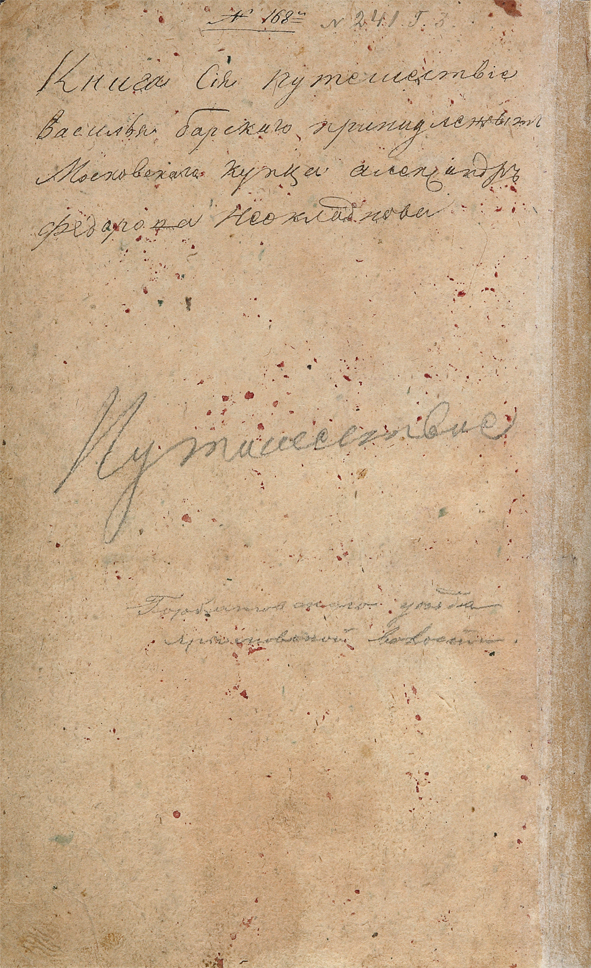 № 168й N 241 Г. 3
Книга Сія путешествіе
Василья барскаго принадлежыт
Московскаго купца александръ
федарова Неокладнова
Путешествие
Горбатовскаго уезда
волости.